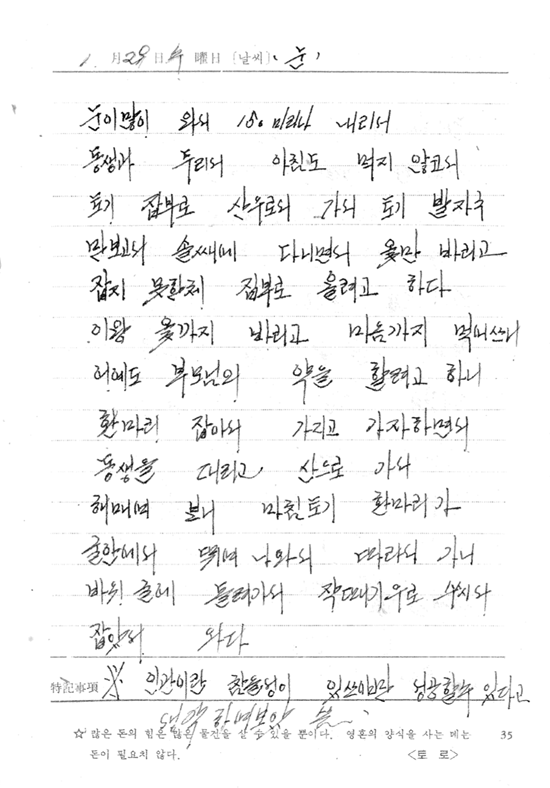 1月 29日 水 曜日 [날씨] 눈
눈이많이 와서 180 미리나 내리서
동생과 두리서 아침도 먹지 않고서
토기 잡부로 산우로의 가서 토기 발자국
만보고서 솔새에 다니면서 옻만 바리고
잡지 못한체 집부로 올려고 하다
이왕 옷까지 바리고 마음까지 먹어쓰니
어에도 부모님의 약을 할려고 하니
한마리 잡아서 가지고 가자하면서
동생을 대리고 산으로 가서
해매며 보니 마침토기 한마리가
굴안에서 뛰며 나와서 따라서 가니
바위 굴에 들려가서 작때기우로 쑤시서
잡았서 와다
特記事項 ※ 인간이란 참을성이 있쓰야만 성공할수 있다고
☆ 많은 돈의 힘은 많은 물건을 살 수 있을 뿐이다. 영혼의 양식을 사는 데는
돈이 필요치 않다. <토 로>
35